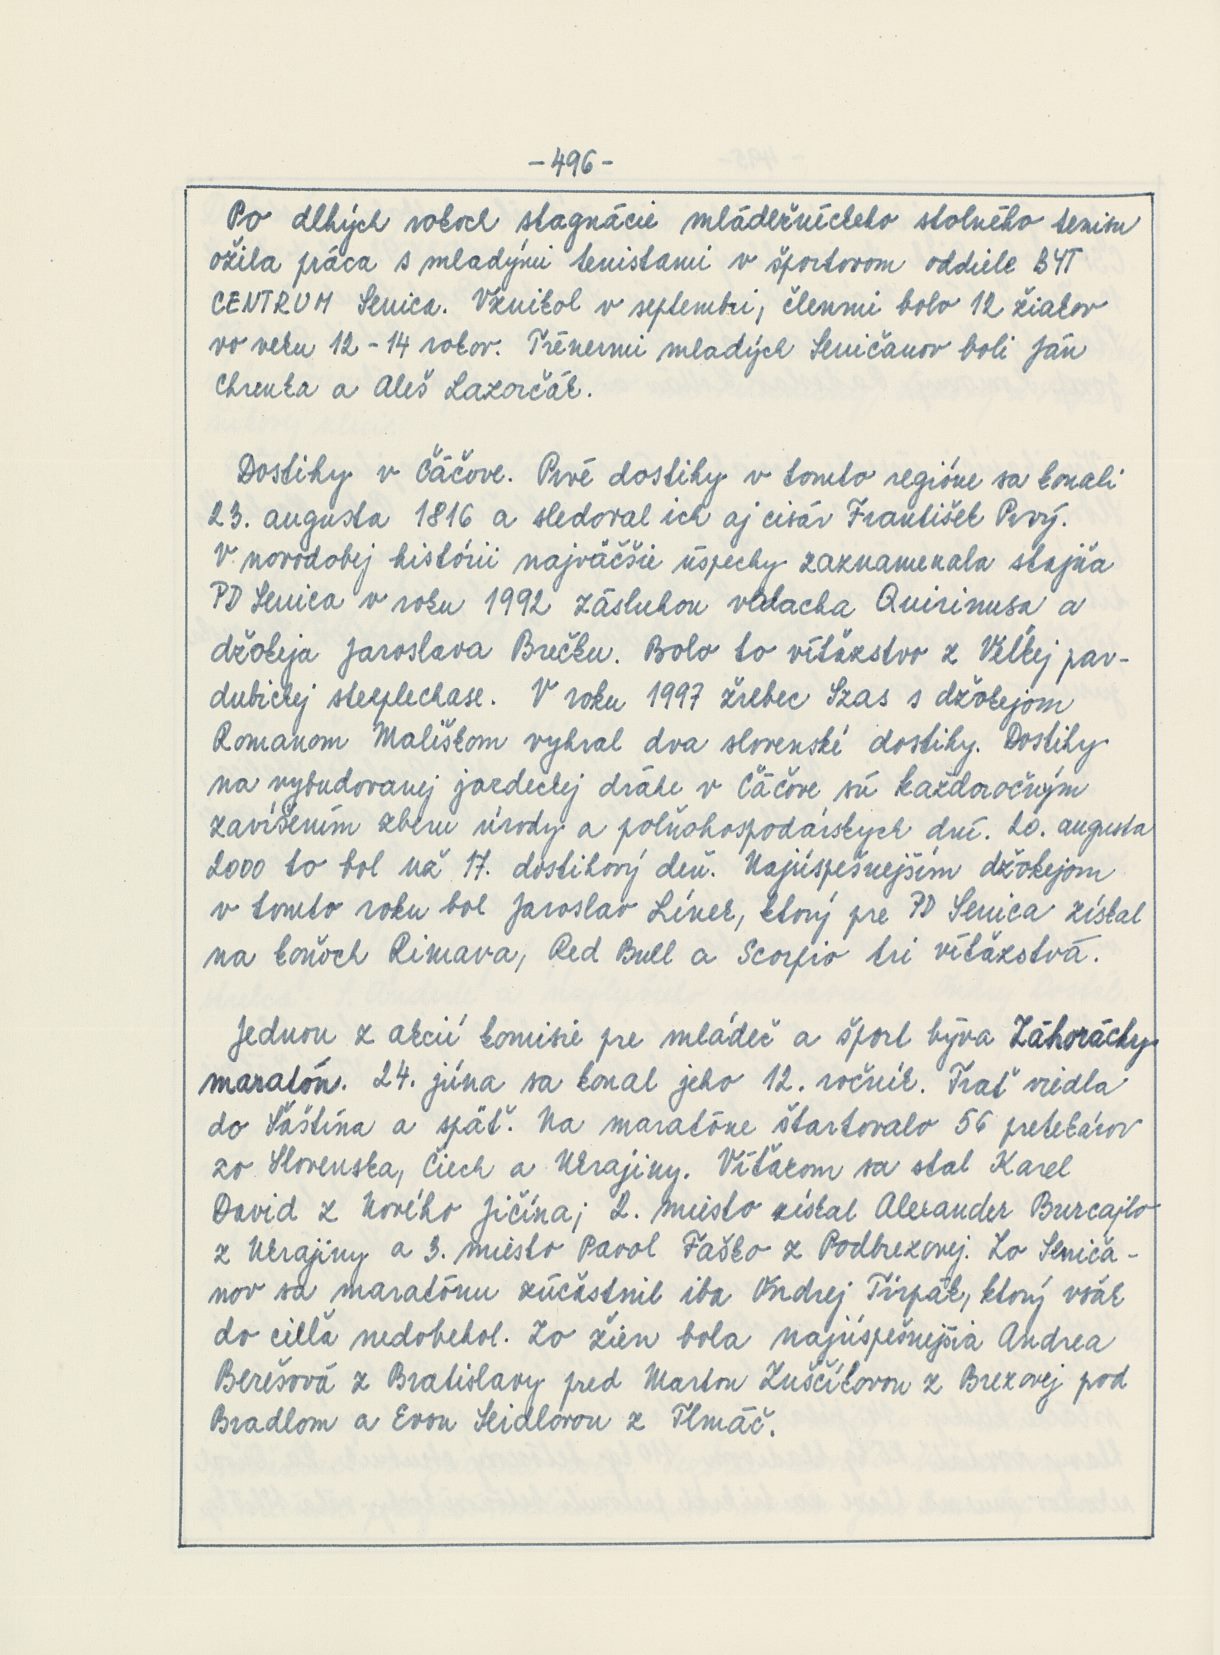 -496-
Po dlhých rokoch stagnácie mládežníckeho stolného tenisu
ožila práca s mladými tenistami v športovom oddiele BYT
CENTRUM Senica. Vznikol v septembri, členmi bolo 12 žiakov
vo veku 12-14 rokov. Trénermi mladých Seničanov boli Ján
Chrenka a Aleš Lazorčák.
Dostihy v Čáčove. Prvé dostihy v tomto regióne sa konali
23. augusta 1816 a sledoval ich aj cisár František Prvý.
V novodobej histórii najväčšie úspechy zaznamenala stajňa
PD Senica v roku 1992 zásluhou valacha Quirinusa a
džokeja Jaroslava Brečku. Bolo to víťazstvo z Veľkej par-
dubickej steeplechase. V roku 1997 žrebec Szas s džokejom
Romanom Mališkom vyhral dva slovenské dostihy. Dostihy
na vybudovanej jazdeckej dráhe v Čáčove sú každoročným
zavŕšením zberu úrody a poľnohospodárskych dní. 20. augusta
2000 to bol už 17. dostihový deň. Najúspešnejším džokejom
v tomto roku bol Jaroslav Línek, ktorý pre PD Senica získal
na koňoch Rimava, Red Bull a Scorpio tri víťazstvá.
Jednou z akcií komisie pre mládež a šport býva Záhorácky
maratón. 24. júna sa konal jeho 12. ročník. Trať viedla
do Šaštína a späť. Na maratóne štartovalo 56 pretekárov
zo Slovenska, Čiech a Ukrajiny. Víťazom sa stal Karel
David z Nového Jičína; 2. miesto získal Alexander Burcajlo
z Ukrajiny a 3. miesto Pavol Faško z Podbrezovej. Zo Seniča-
nov sa maratónu zúčastnil iba Ondrej Tirpák, ktorý však
do cieľa nedobehol. Zo žien bola najúspešnejšia Andrea
Berešová z Bratislavy pred Martou Zuščíkovou z Brezovej pod
Bradlom a Evou Seidlovou z Tlmáč.